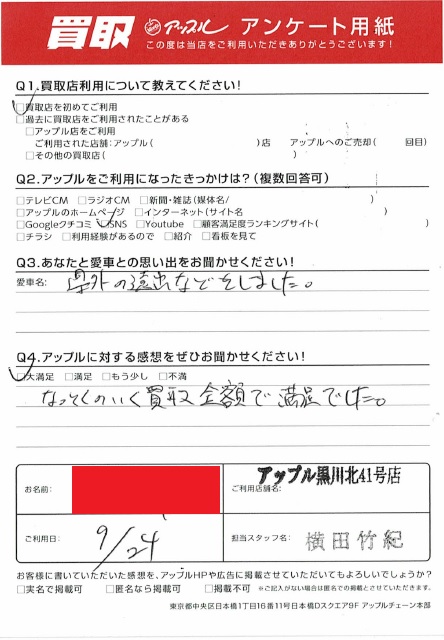 買取 アップル アンケート用紙
この度は当店をご利用いただきありがとうございます!
Q1.買取店利用について教えてください!
□買取店を初めてご利用
□過去に買取店をご利用されたことがある
□アップル店をご利用
ご利用された店舗:アップル( )店 アップルへのご売却( 回目)
□その他の買取店( )
Q2.アップルをご利用になったきっかけは?(複数回答可)
□テレビCM □ラジオCM □新聞・雑誌(媒体名/ )
□アップルのホームページ □インターネット(サイト名 )
□Googleクチコミ □SNS □Youtube □顧客満足度ランキングサイト( )
□チラシ □利用経験があるので □紹介 □看板を見て
Q3.あなたと愛車との思い出をお聞かせください!
愛車名: 県外の遠出などをしました。
Q4.アップルに対する感想をぜひお聞かせください!
□大満足 □満足 □もう少し □不満
なっとくのいく買取金額で満足でした。
お名前:
ご利用店舗名: アップル黒川北41号店
ご利用日: 9/24
担当スタッフ名: 横田竹紀
お客様に書いていただいた感想を、アップルHPや広告に掲載させていただいてもよろしいでしょうか?
□実名で掲載可 □匿名なら掲載可 □掲載不可 ※ご記入がない場合は匿名での掲載とさせていただきます。
東京都中央区日本橋1丁目16番11号日本橋Dスクエア9F アップルチェーン本部